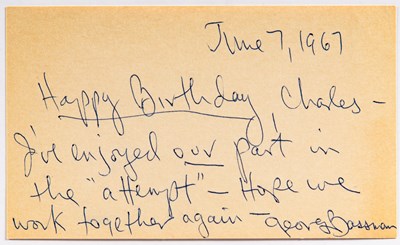 June 7, 1967
Happy Birthday, Charles –
I've enjoyed our part in
the "attempt" – Hope we
work together again – George Bassman